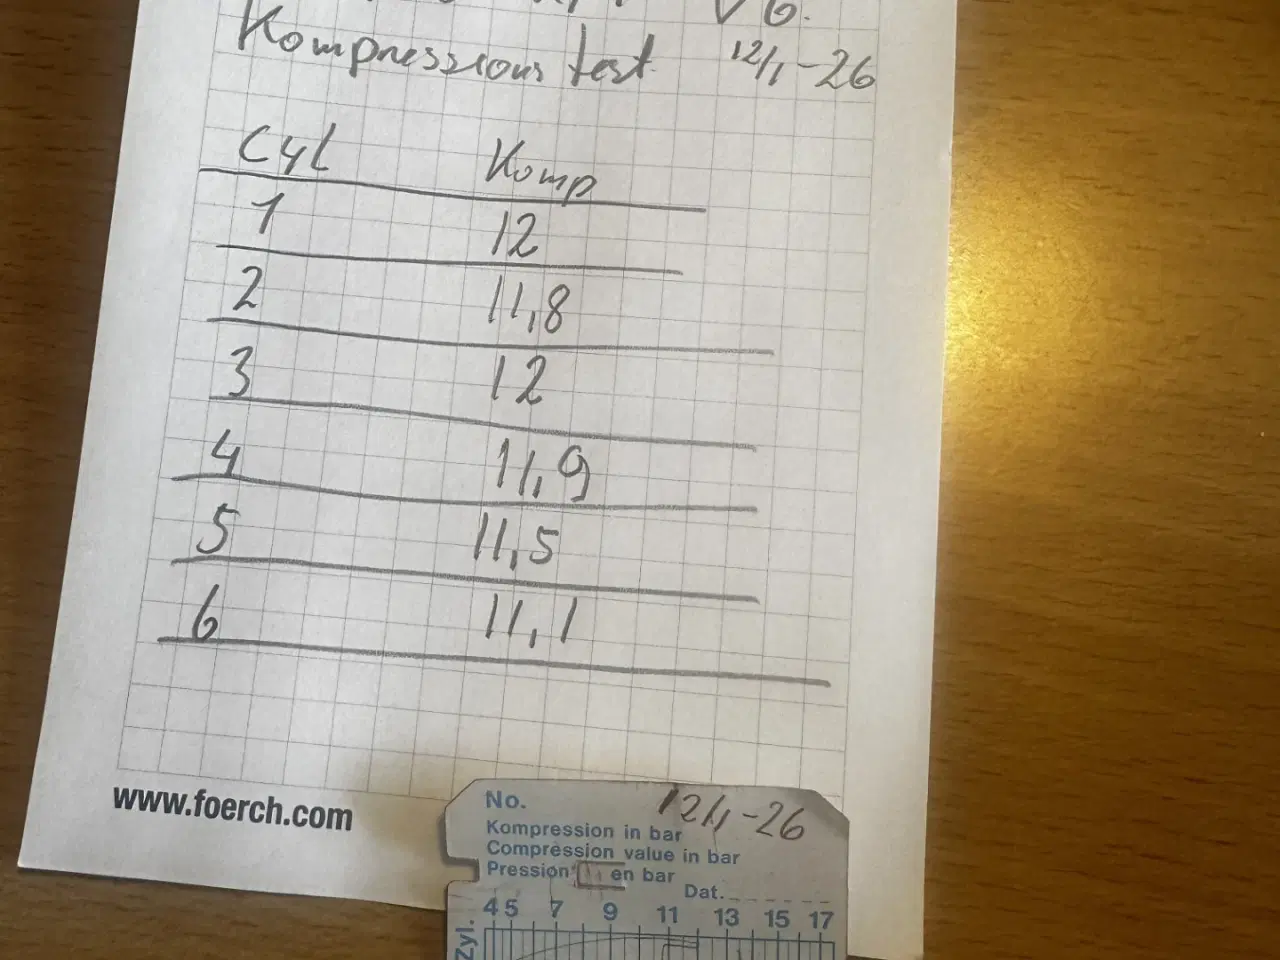 V6.
Kompressions test 12/1-26
Cyl Komp
1 12
2 11,8
3 12
4 11,9
5 11,5
6 11,1
www.foerch.com
No. 12/1-26
Kompression in bar
Compression value in bar
Pression en bar
Dat.
4 5 7 9 11 13 15 17
Zyl.